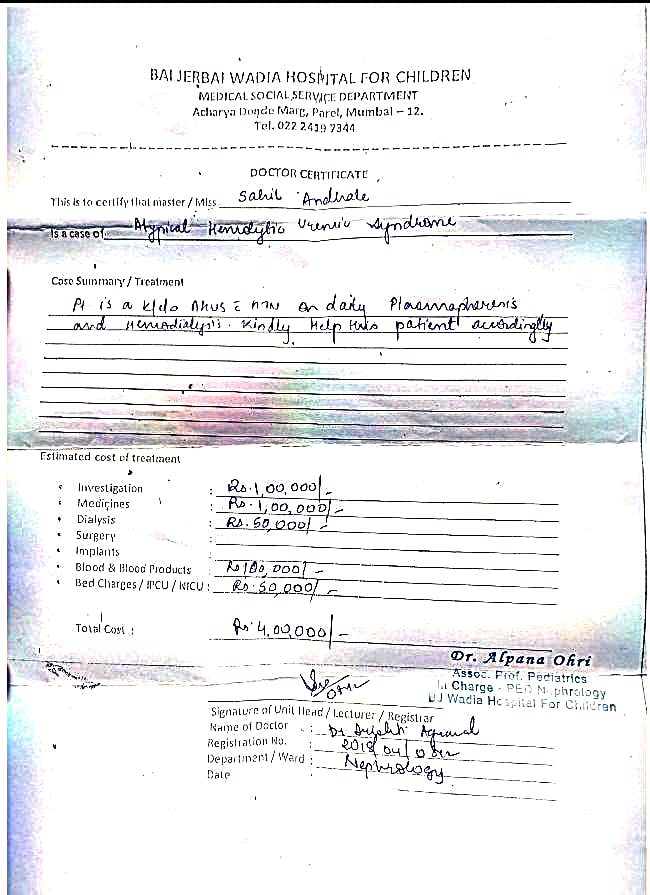 BAI JERBAI WADIA HOSPITAL FOR CHILDREN
MEDICAL SOCIAL SERVICE DEPARTMENT
Acharya Donde Marg, Parel, Mumbai – 12.
Tel. 022 2419 7344
DOCTOR CERTIFICATE
This is to certify that master / Miss Sahil Andhale
Is a case of Atypical Hemolytic Uremic Syndrome
Case Summary / Treatment
Pt is a k/c/o AHUS c HTN on daily Plasmapheresis
and Hemodialysis. Kindly Help this patient accordingly
Estimated cost of treatment
• Investigation : Rs.1,00,000/-
• Medicines : Rs.1,00,000/-
• Dialysis : Rs.50,000/-
• Surgery :
• Implants
• Blood & Blood Products : Rs100,000/-
• Bed Charges / IPCU / NICU : Rs.50,000/-
Total Cost : Rs.4,00,000/-
Dr. Alpana Ohri
Assoc. Prof. Pediatrics
In Charge - PED Nephrology
BJ Wadia Hospital For Children
Signature of Unit Head / Lecturer / Registrar
Name of Doctor : Dr Agrawal
Registration No. : 2018/04/
Department / Ward : Nephrology
Date :